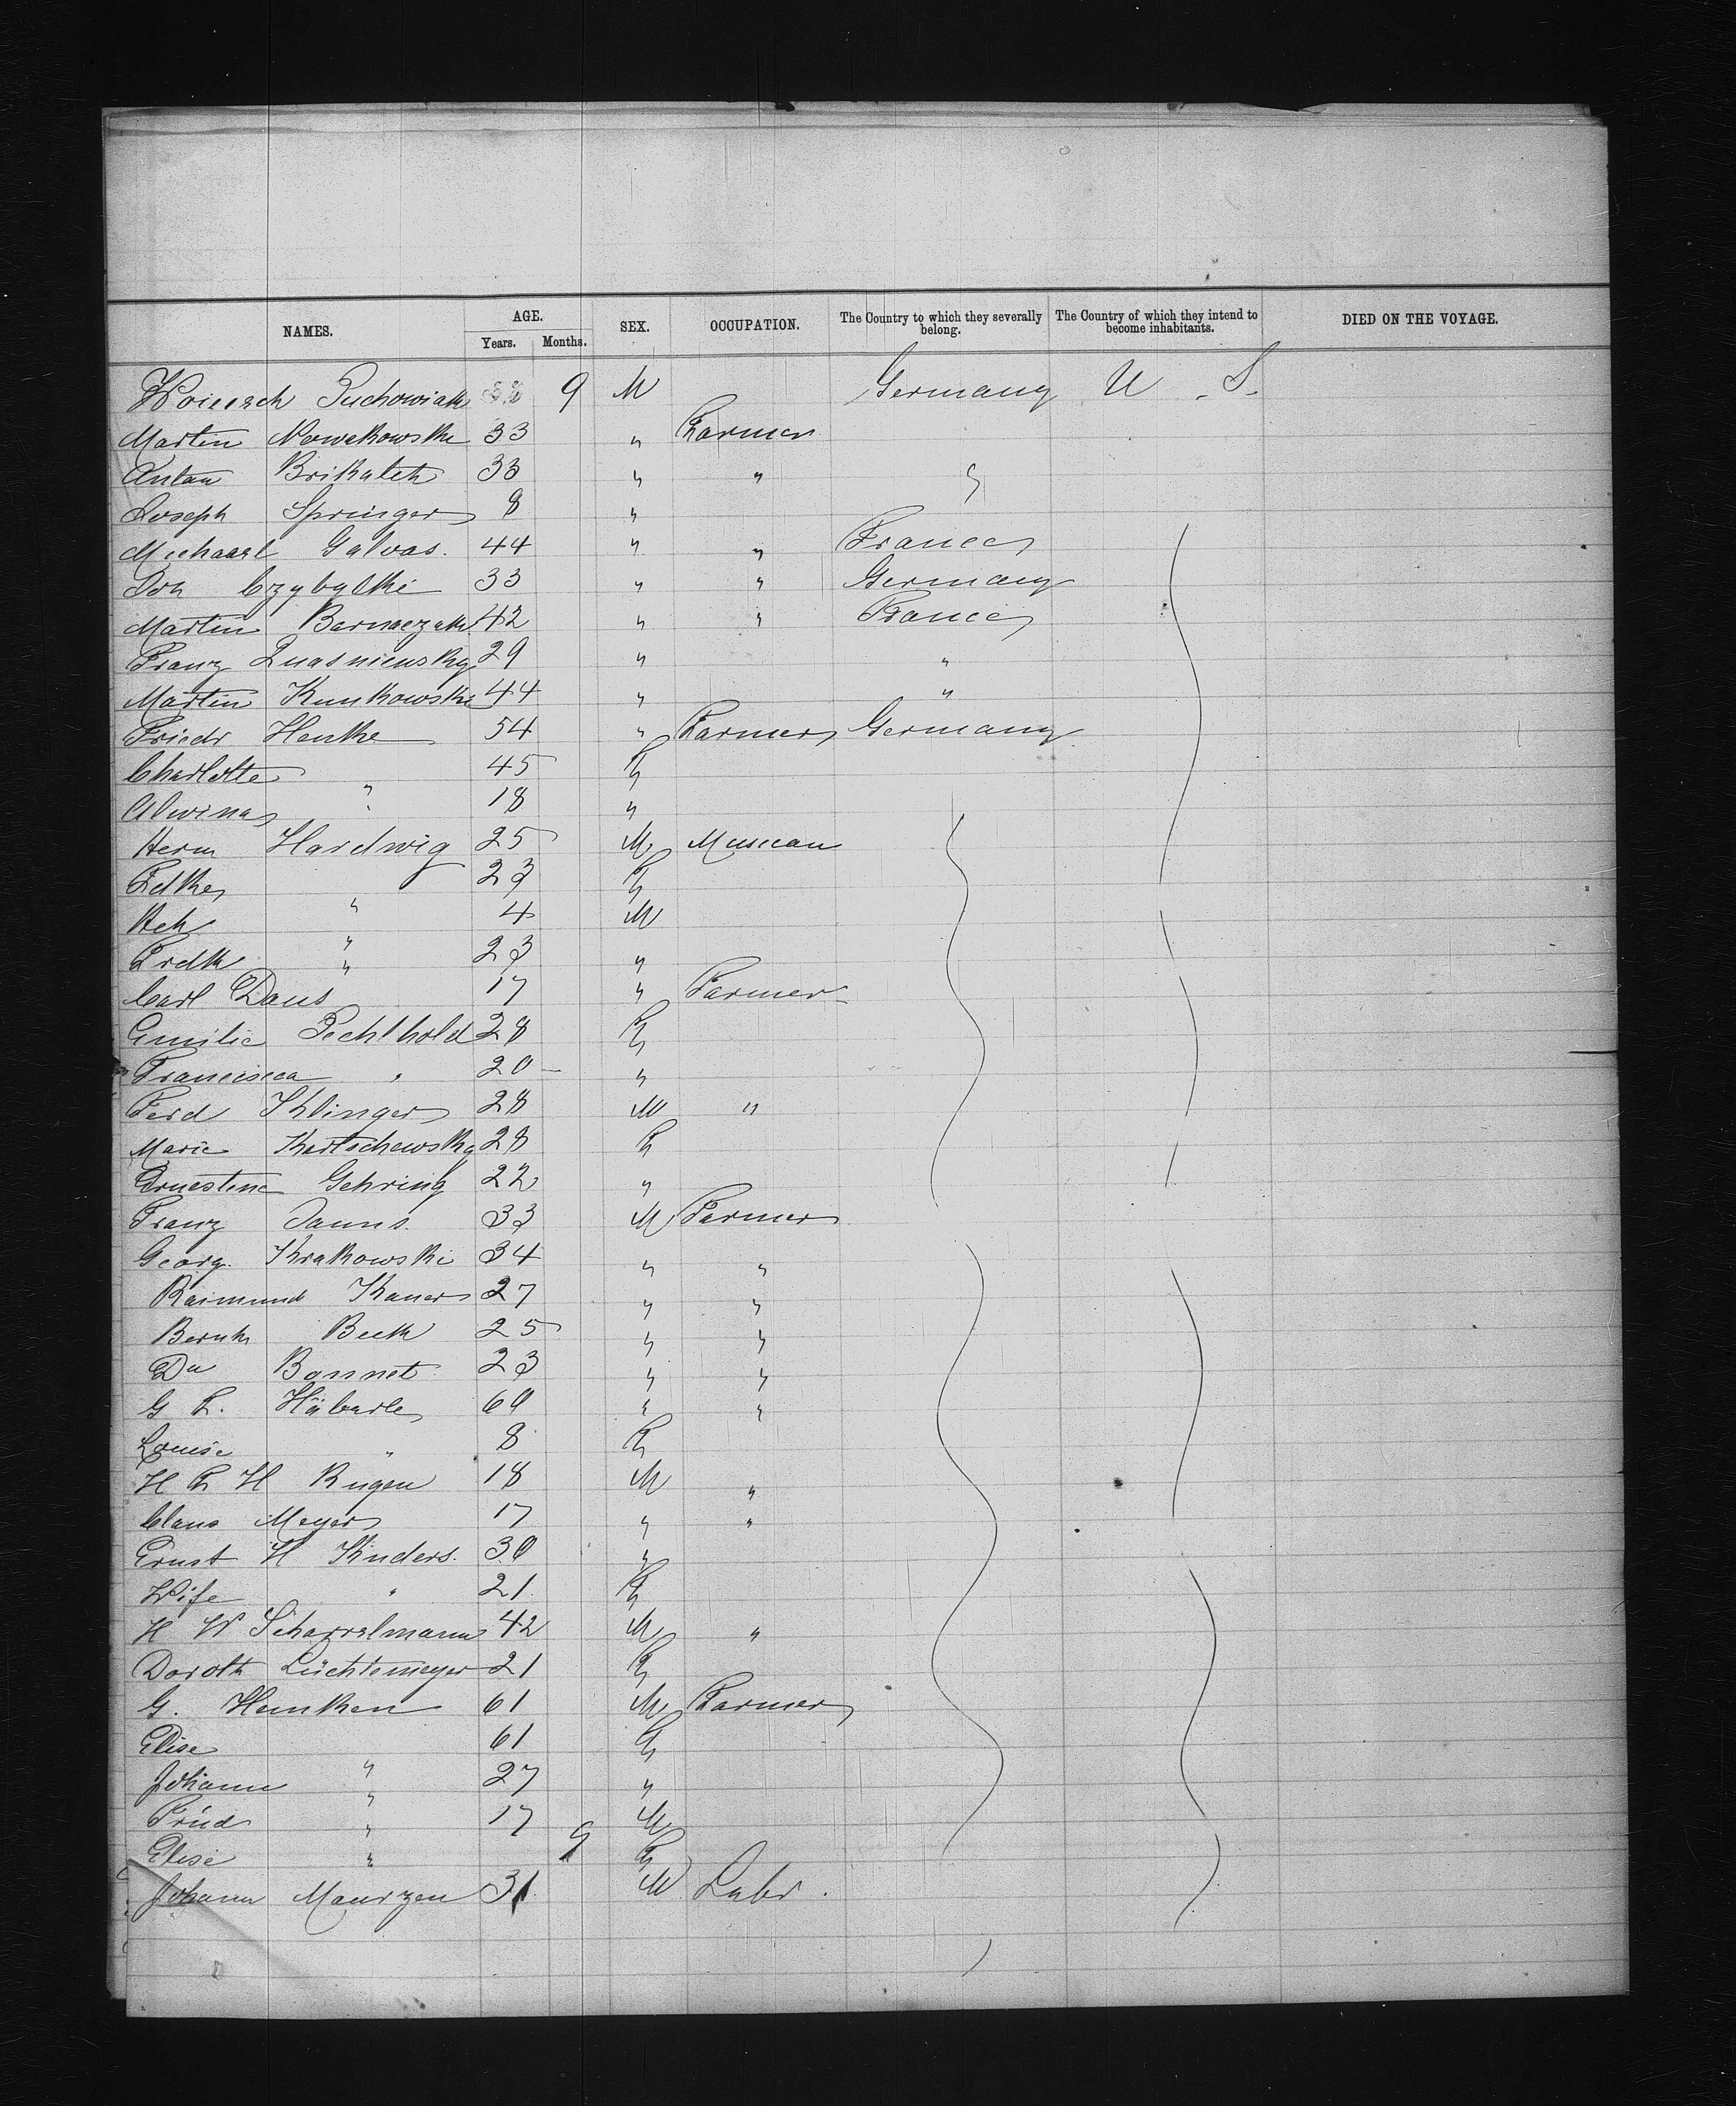 NAMES. AGE. SEX. OCCUPATION. The Country to which they severally belong. The Country of which they intend to become inhabitants. DIED ON THE VOYAGE.
Years. Months.
Woiczech Puchowiak 9 M Germany U.S.
Martin Nowakowske 33 " Farmer
Anton Brikateh 33 " " "
Joseph Springer 8 "
Michaael Galvas. 44 " " France
Joh Czybylki 33 " " Germany
Martin Bernaczak 42 " " France
Franz Quasniewsky 29 " "
Martin Kunkowski 44 " "
Friedr Henke 54 " Farmer Germany
Charlotte " 45 F
Alwina " 18 "
Herm Hardwig 25 M Musican
Fdke " 23 F
Hch " 4 M
Frdk " 23 "
Carl Daus 17 " Farmer
Emilie Pechthold 28 F
Francisca " 20 "
Ferd Klinger 28 M "
Marie Kartschewsky 28 F
Ernestine Gehring 22 "
Franz Janns. 33 M Farmer
Georg. Krakowski 34 " "
Raimund Kaner 27 " "
Bernh Beck 25 " "
Du Bonnet 23 " "
G F. Häberle 60 " "
Louise " 8 F
H F H Rugen 18 M "
Claus Meyer 17 " "
Ernst H Knders. 30 "
Wife " 21 F
H W Scharrelmann 42 M "
Doroth Lüchtemeyer 21 F
G. Hemken 61 M Farmer
Elise " 61 F
Johanne " 27 "
Fried " 17 M
Elise " 9 F
Johann Maurzen 31 M Labr.